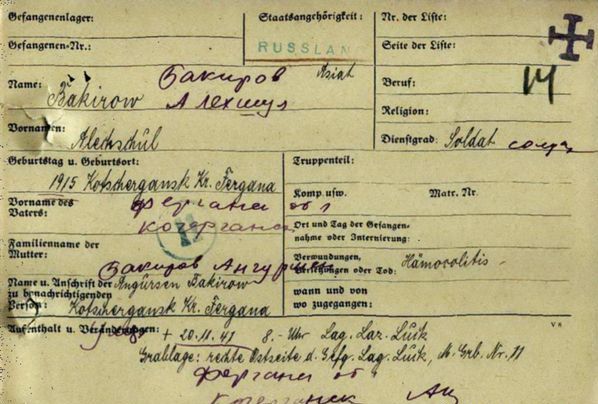 Gefangenenlager:
Staatsangehörigkeit:
Nr. der Liste:
Gefangenen-Nr.:
RUSSLAN
Seite der Liste:
Name:
Бакиров
Asiat
Beruf:
14
Bakirow
Алехшул
Religion:
Vornamen:
Alechschül
Dienstgrad: Soldat
Geburtstag u. Geburtsort:
Truppenteil:
1915 Kotschergansk Kr. Fergana
Komp usw.
Matr. Nr.
Vorname des
Vaters:
Фергана об
когерганск
Ort und Tag der Gefangen-
nahme oder Internierung:
Familienname der
Mutter:
Бакиров Ангурсен
Verwundungen,
Verletzungen oder Tod: Hämocolitis
Name u. Anschrift der
zu benachrichtigenden
Person:
Angürsen Bakirow
Kotschergansk Kr. Fergana
wann und von
wo zugegangen:
Aufenthalt u. Veränderungen:
V 8
+ 20.11.41 8.- Uhr Lag. Laz. Luik
Grablage: rechte Ostseite d. Gefg. Lag. Luik, M. Grb. Nr. 11
Фергана об
когерганск Ан